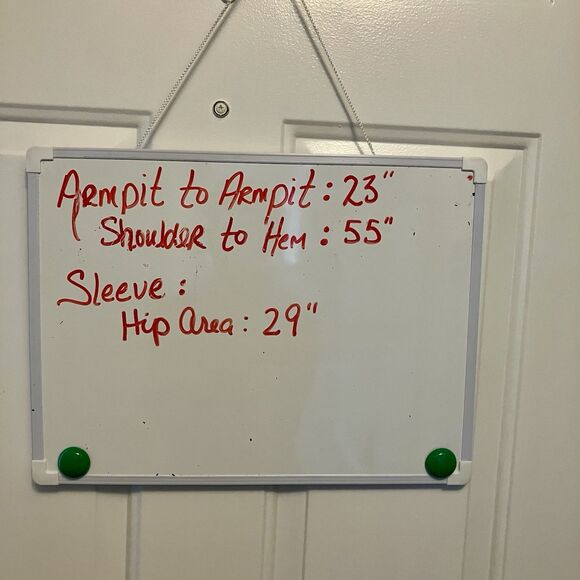 Armpit to Armpit: 23"
Shoulder to Hem: 55"
Sleeve:
Hip Area: 29"